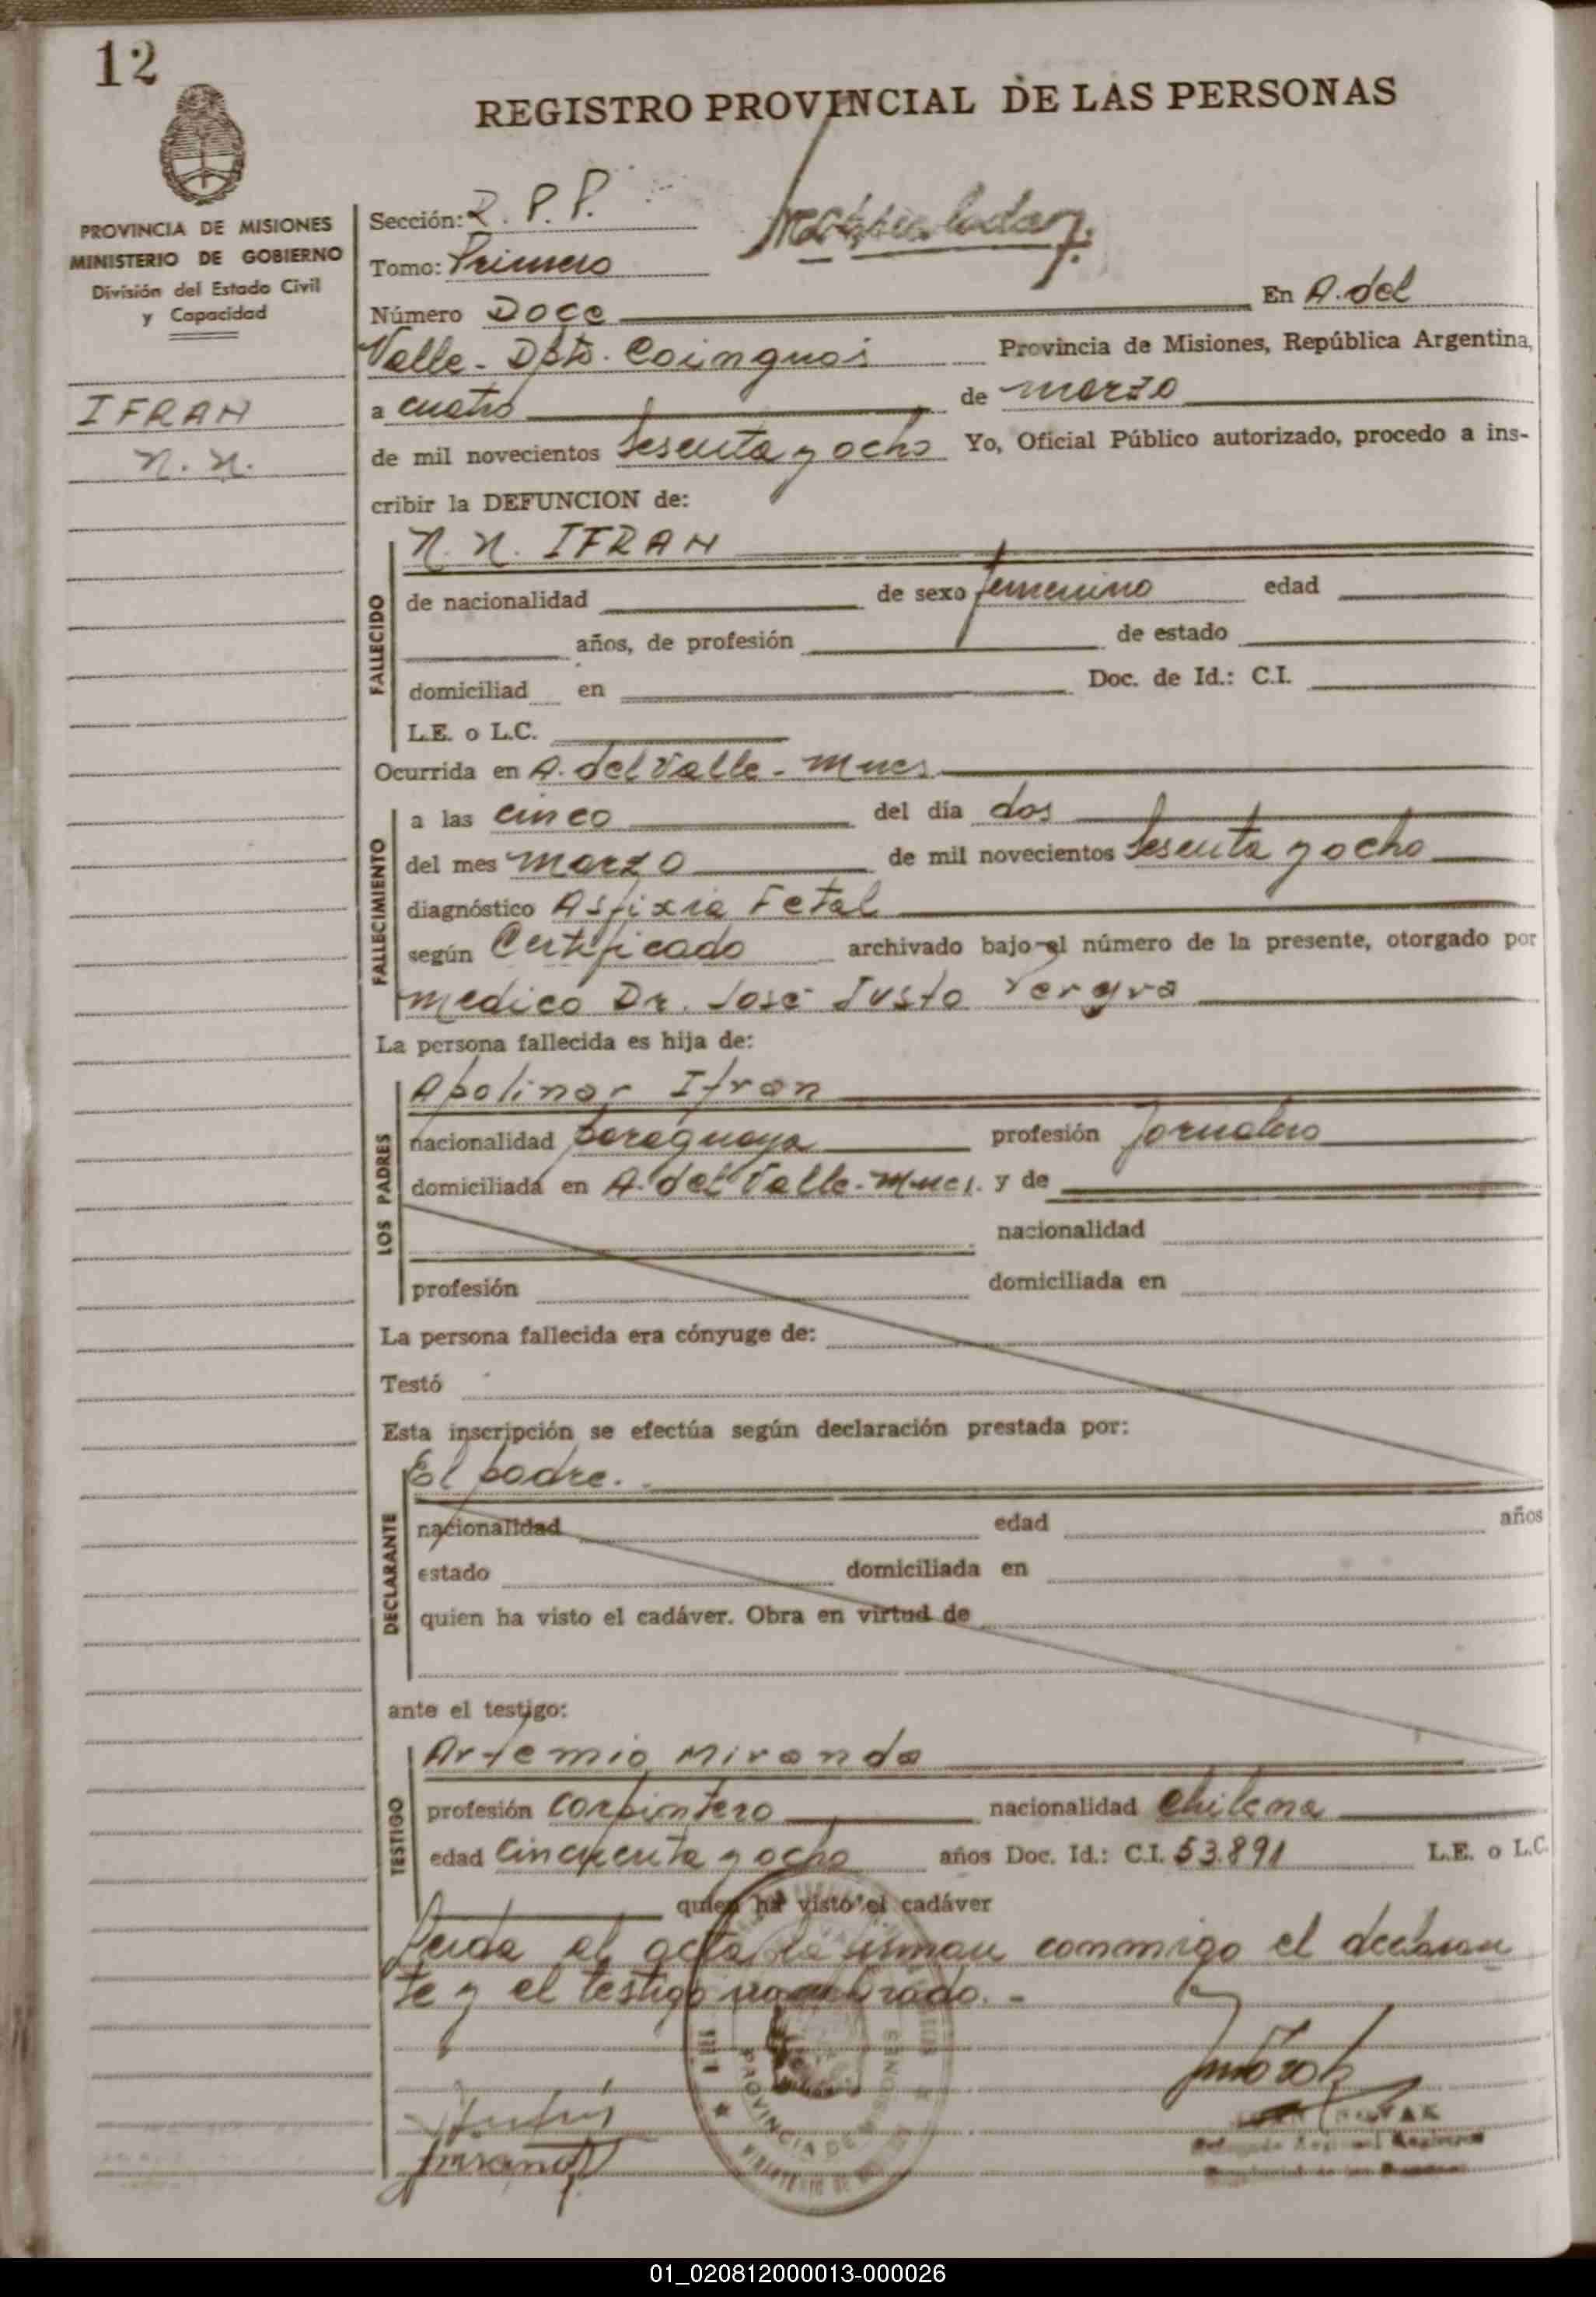 12
REGISTRO PROVINCIAL DE LAS PERSONAS
PROVINCIA DE MISIONES
MINISTERIO DE GOBIERNO
División del Estado Civil
y Capacidad
IFRAN
N. N.
Sección: R. P. P.
Tomo: Primero
Número Doce En A. del
Valle - Dpto. Cainguas Provincia de Misiones, República Argentina,
a cuatro de marzo
de mil novecientos sesenta y ocho Yo, Oficial Público autorizado, procedo a ins-
cribir la DEFUNCION de:
FALLECIDO
N. N. IFRAN
de nacionalidad de sexo femenino edad
años, de profesión de estado
domiciliad en Doc. de Id.: C.I.
L.E. o L.C.
Ocurrida en A. del Valle - Mnes
FALLECIMIENTO
a las cinco del día dos
del mes marzo de mil novecientos sesenta y ocho
diagnóstico Asfixia Fetal
según Certificado archivado bajo el número de la presente, otorgado por
medico Dr. José Justo
La persona fallecida es hija de:
LOS PADRES
Apolinar Ifran
nacionalidad paraguaya profesión Jornalero
domiciliada en A. del Valle - Mnes. y de
nacionalidad
profesión domiciliada en
La persona fallecida era cónyuge de:
Testó
Esta inscripción se efectúa según declaración prestada por:
DECLARANTE
El padre.
nacionalidad edad años
estado domiciliada en
quien ha visto el cadáver. Obra en virtud de
ante el testigo:
TESTIGO
Artemio Miranda
profesión carpintero nacionalidad chilena
edad cincuenta y ocho años Doc. Id.: C.I. 53.891 L.E. o L.C.
quien ha visto el cadáver
Leida el acta la firman conmigo el declaran
te y el testigo nombrado. -
PROVINCIA DE MISIONES
01_020812000013-000026